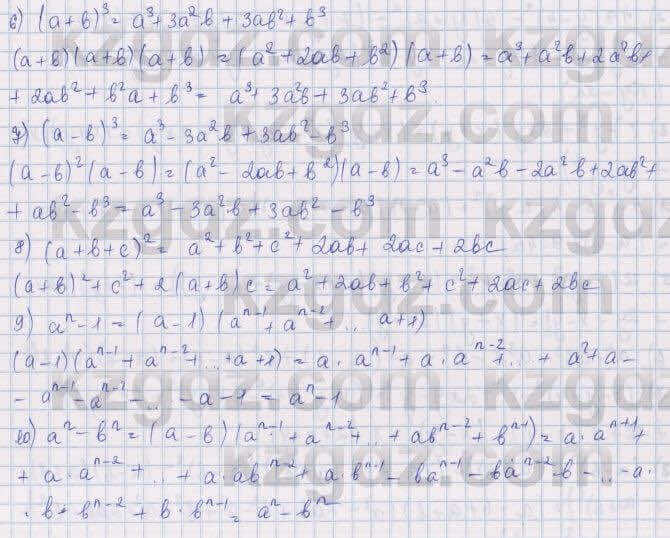 6) (a+b)³ = a³+3a²b+3ab²+b³
(a+b)(a+b)(a+b) = (a²+2ab+b²)(a+b) = a³+a²b+2a²b+
+ 2ab²+b²a+b³ = a³+3a²b+3ab²+b³.
7) (a-b)³ = a³-3a²b+3ab²-b³
(a-b)²(a-b) = (a²-2ab+b²)(a-b) = a³-a²b-2a²b+2ab²+
+ ab²-b³ = a³-3a²b+3ab²-b³
8) (a+b+c)² = a²+b²+c²+2ab+2ac+2bc
(a+b)²+c²+2(a+b)c = a²+2ab+b²+c²+2ac+2bc
9) aⁿ-1 = (a-1)(aⁿ⁻¹+aⁿ⁻²+... a+1)
(a-1)(aⁿ⁻¹+aⁿ⁻²+...+a+1) = a·aⁿ⁻¹+a·aⁿ⁻²+...+a²+a-
- aⁿ⁻¹-aⁿ⁻²-...-a-1 = aⁿ-1
10) aⁿ-bⁿ = (a-b)(aⁿ⁻¹+aⁿ⁻²+...+abⁿ⁻²+bⁿ⁻¹) = a·aⁿ⁺¹+
+ a·aⁿ⁻²+...+a·abⁿ⁻²+a·bⁿ⁻¹-baⁿ⁻¹-baⁿ⁻²·b-...-a·
· b·bⁿ⁻²+b·bⁿ⁻¹ = aⁿ-bⁿ
kzgdz.com